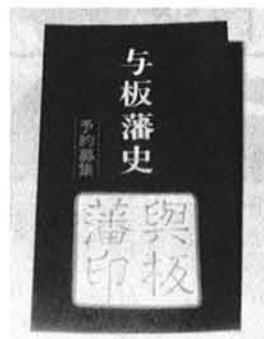 与板藩史
予約募集
與板
藩印